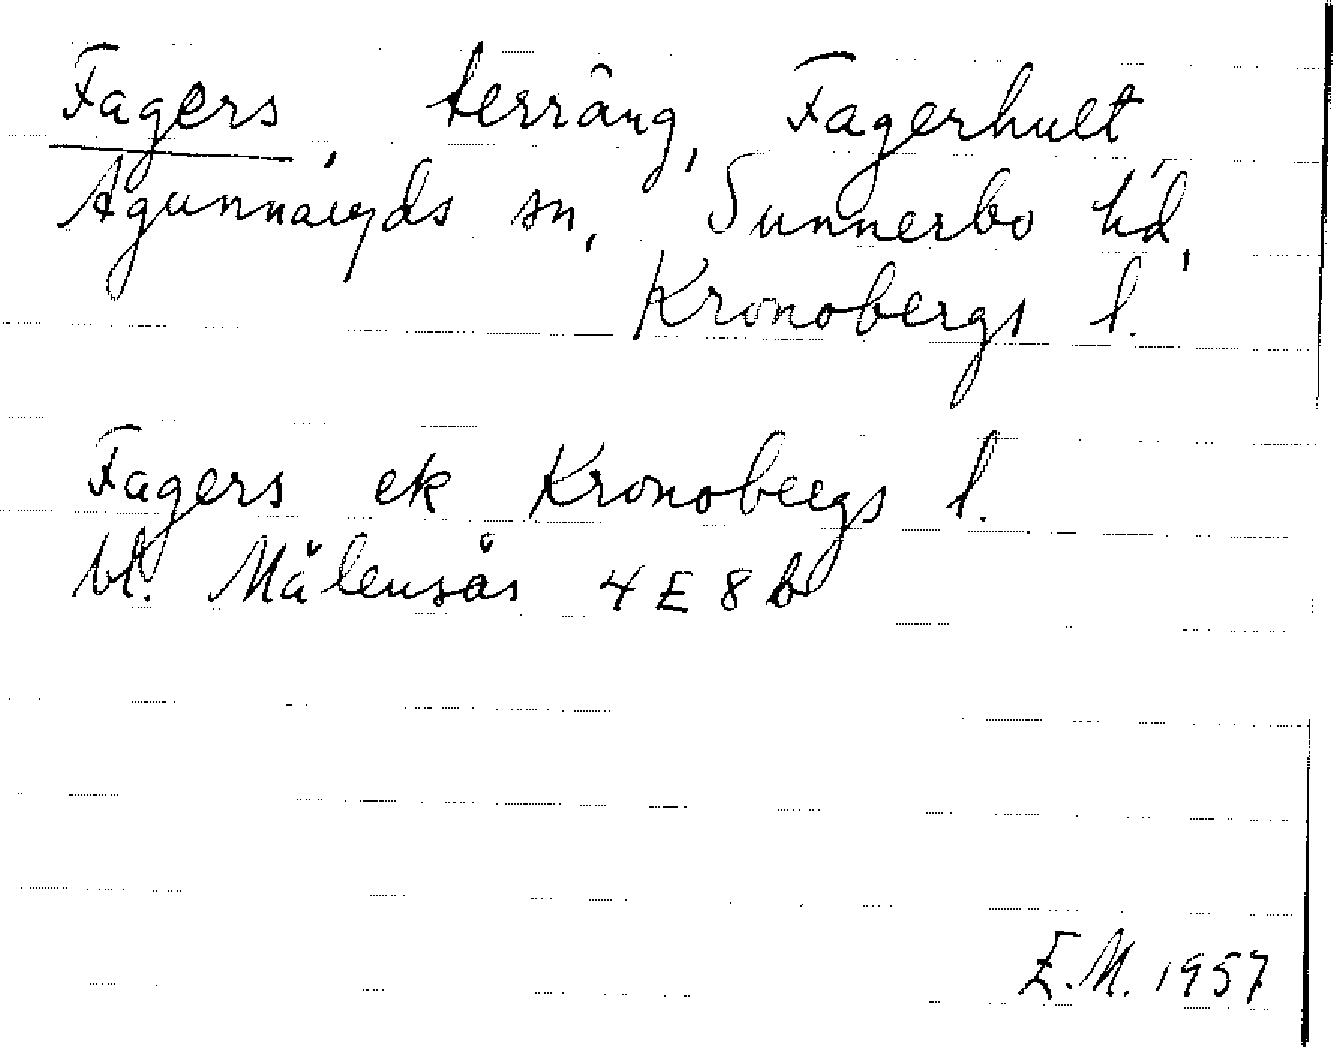 Fagers, terräng, Fagerhult,
Agunnaryds sn, Sunnerbo hd,
Kronobergs l.
Fagers ek Kronobergs l.
bl. Målensås 4E8b
E.M. 1957